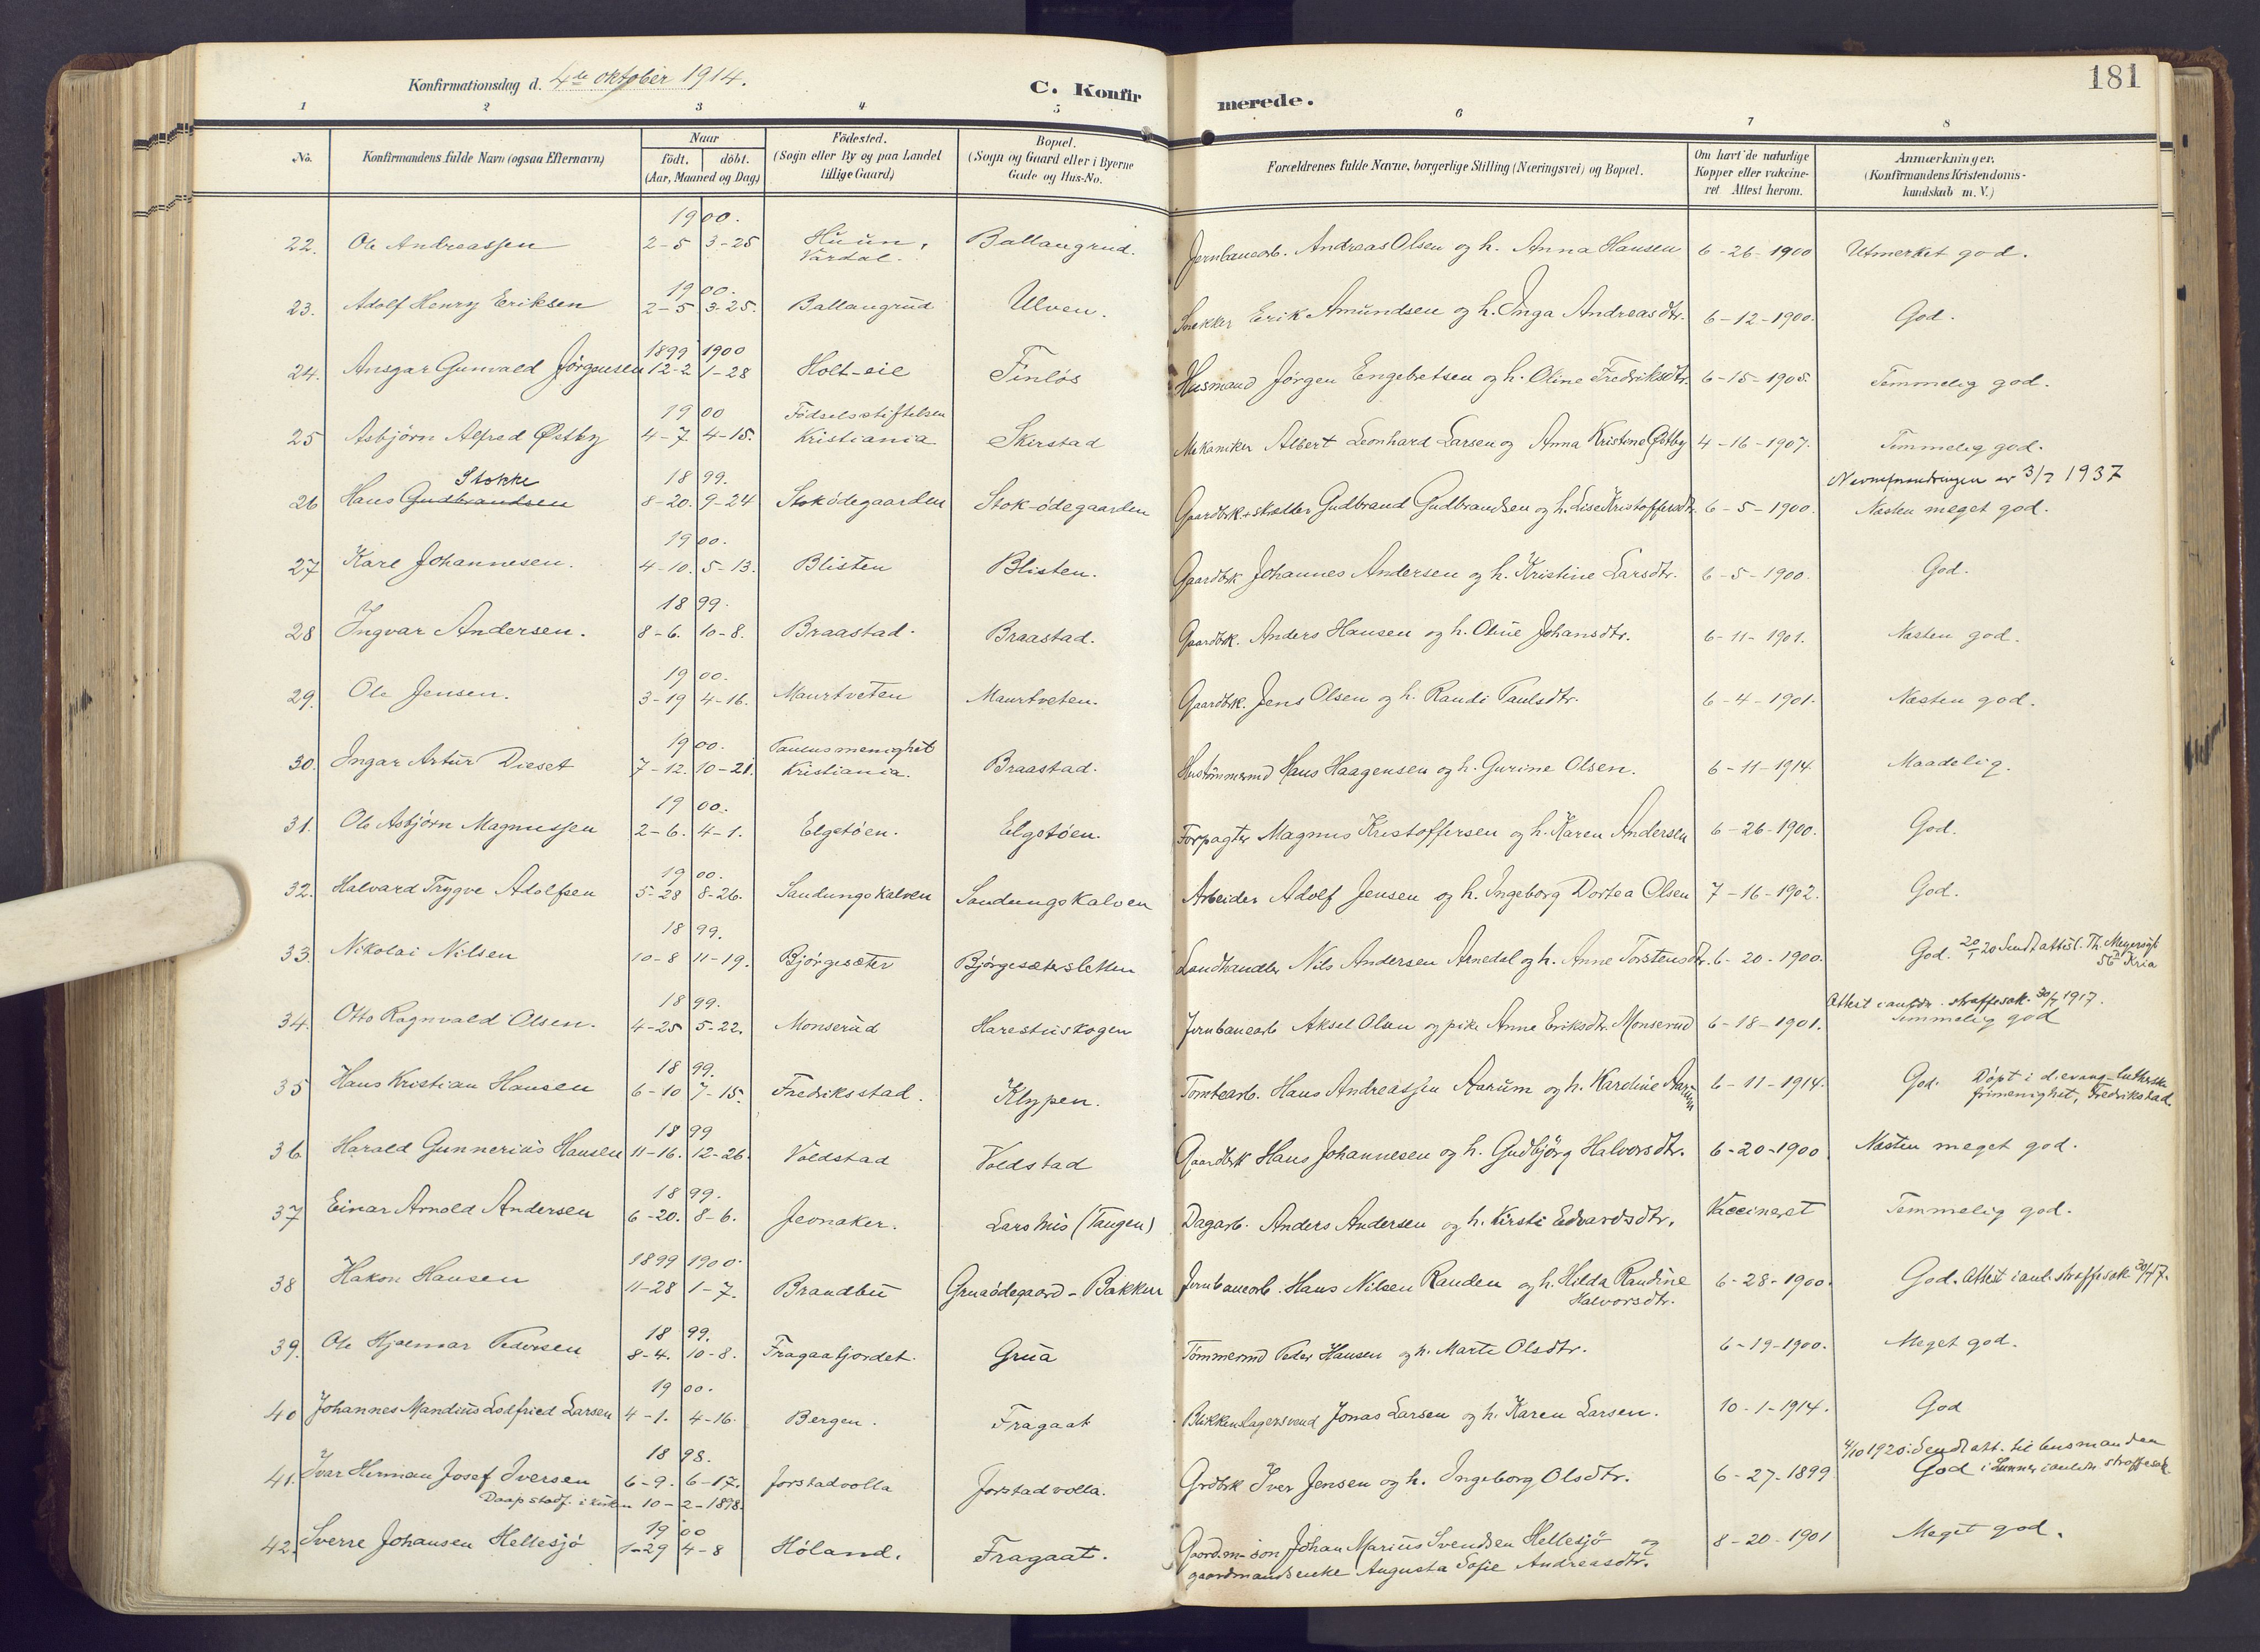 181
Konfirmationsdag d. 4de oktober 1914.
C. Konfir merede.
1 2 3 4 5 6 7 8
No. Konfirmandens fulde Navn (ogsaa Efternavn) Naar født. døbt. (Aar, Maaned og Dag) Fødested. (Sogn eller By og paa Landet tillige Gaard) Bopæl. (Sogn og Gaard eller i Byerne Gade og Hus-No. Forældrenes fulde Navne, borgerlige Stilling (Næringsvei) og Bopæl. Om havt de naturlige Kopper eller vakcineret Attest herom. Anmærkninger. (Konfirmandens Kristendomskundskab m. V.)
1900.
22. Ole Andreassen 2-5 3-25 Huun, Vardal. Ballangrud. Jernbanearb. Andreas Olsen og h. Anna Hansen 6-26-1900 Utmerket god.
1900.
23. Adolf Henry Eriksen 2-5 3-25. Ballangrud Ulven. Snekker Erik Amundsen og h. Inga Andreasdtr. 6-12-1900. God.
1899 1900
24. Ansgar Gunvald Jørgensen 12-2 1-28 Holt-eie Finløs Husmand Jørgen Engebretsen og h. Oline Fredriksdtr. 6-15-1905. Temmelig god.
1900 Fødselsstiftelsen
25 Asbjørn Alfred Østby 4-7 4-15. Kristiania Skirstad Mekaniker Albert Leonhard Larsen og Anna Kristine Østby 4-16-1907. Temmelig god.
Stokke 1899. Navneforandringen av 3/7 1937
26 Hans Gudbrandsen 8-20. 9-24 Stokødegaarden Stok-ødegaarden Gaardbrk. + skrædder Gudbrand Gudbrandsen og h. Lise Kristoffersdtr. 6-5-1900. Næsten meget god.
1900.
27 Karl Johannesen. 4-10. 5-13. Blisten Blisten. Gaardbrk Johannes Andersen og h. Kristine Larsdtr. 6-5-1900. God.
1899.
28 Ingvar Andersen. 8-6. 10-8. Braastad. Braastad. Gaardbrk. Anders Hansen og h. Oline Johansdtr. 6-11-1901. Næsten god.
1900.
29. Ole Jensen. 3-19 4-16. Maurtveten Maurtveten. Gaardbrk. Jens Olsen og h. Randi Paulsdtr. 6-4-1901. Næsten god.
1900. Paulus menighet
30. Ingar Artur Dieset 7-12. 10-21. Kristiania. Braastad. Hustømmermd Hans Haagensen og h. Gurine Olsen. 6-11-1914 Maadelig.
1900.
31. Ole Asbjørn Magnussen 2-6. 4-1. Elgstøen. Elgstøen. Forpagter Magnus Kristoffersen og h. Karen Andersen 6-26-1900. God.
1900.
32. Halvard Trygve Adolfsen 5-28 8-26. Sandungskalven Sandungskalven Arbeider Adolf Jensen og h. Ingeborg Dortea Olsen 7-16-1902. God.
1899.
33. Nikolai Nilsen 10-8 11-19. Bjørgesæter Bjørgesætersletten Landhandler Nils Andersen Arnedal og h. Anne Torstensdtr. 6-20-1900. God. 20/1 20 Sendt attest. Th. Meyersgt 56 Kria
1899. Attest i anledn. straffesak 30/7 1917.
34. Otto Ragnvald Olsen. 4-25 5-22. Monserud Harestuskogen Jernbanearb Aksel Olsen og pike Anne Eriksdtr. Monserud 6-18-1901. Temmelig god
1899.
35 Hans Kristian Hansen 6-10 7-15. Fredriksstad. Klypen. Tomtearb. Hans Andreassen Aarum og h. Karoline Aarum 6-11-1914. God. Døpt i d. evang-lutherske frimenighet, Fredrikstad.
1899
36 Harald Gunnerius Hansen 11-16. 12-26. Voldstad Voldstad Gaardbrk Hans Johannesen og h. Gudbjørg Halvorsdtr. 6-20-1900. Næsten meget god.
1899.
37 Einar Arnold Andersen 6-20. 8-6. Jevnaker. Larshus (Tangen) Dagarb. Anders Andersen og h. Kirsti Edvardsdtr. Vaccineret Temmelig god.
1899 1900.
38 Håkon Hansen 11-28 1-7. Brandbu Gruaødegaard-Bakken Jernbanearb. Hans Nilsen Randen og h. Hilda Randine Halvorsdtr. 6-28-1900. God. Attest i anl. straffesak 30/7 17.
1899.
39. Ole Hjalmar Pedersen 8-4. 10-8. Fragaatjordet. Grua Tømmermd Peder Hansen og h. Marte Olsdtr. 6-19-1900. Meget god.
1900.
40 Johannes Mandius Lodfried Larsen 4-1. 4-16. Bergen. Fragaat Blikkenslagersvend Jonas Larsen og h. Karen Larsen. 10-1-1914. God
1898. 4/10 1920. Sendt att. til lensmanden
41. Ivar Herman Josef Iversen 6-9. 6-17. Jorstadvolla Jorstadvolla. Grdbrk Iver Jensen og h. Ingeborg Olsdtr. 6-27-1899. God i Lunner i anledn. straffesak
Daap stadf. i kirken 10-2-1898.
1900
42. Sverre Johansen Hellesjø 1-29 4-8 Høland. Fragaat. Gaardm-søn Johan Marius Svendsen Hellesjø og gaardmandsenke Augusta Sofie Andreasdtr. 8-20-1901 Meget god.